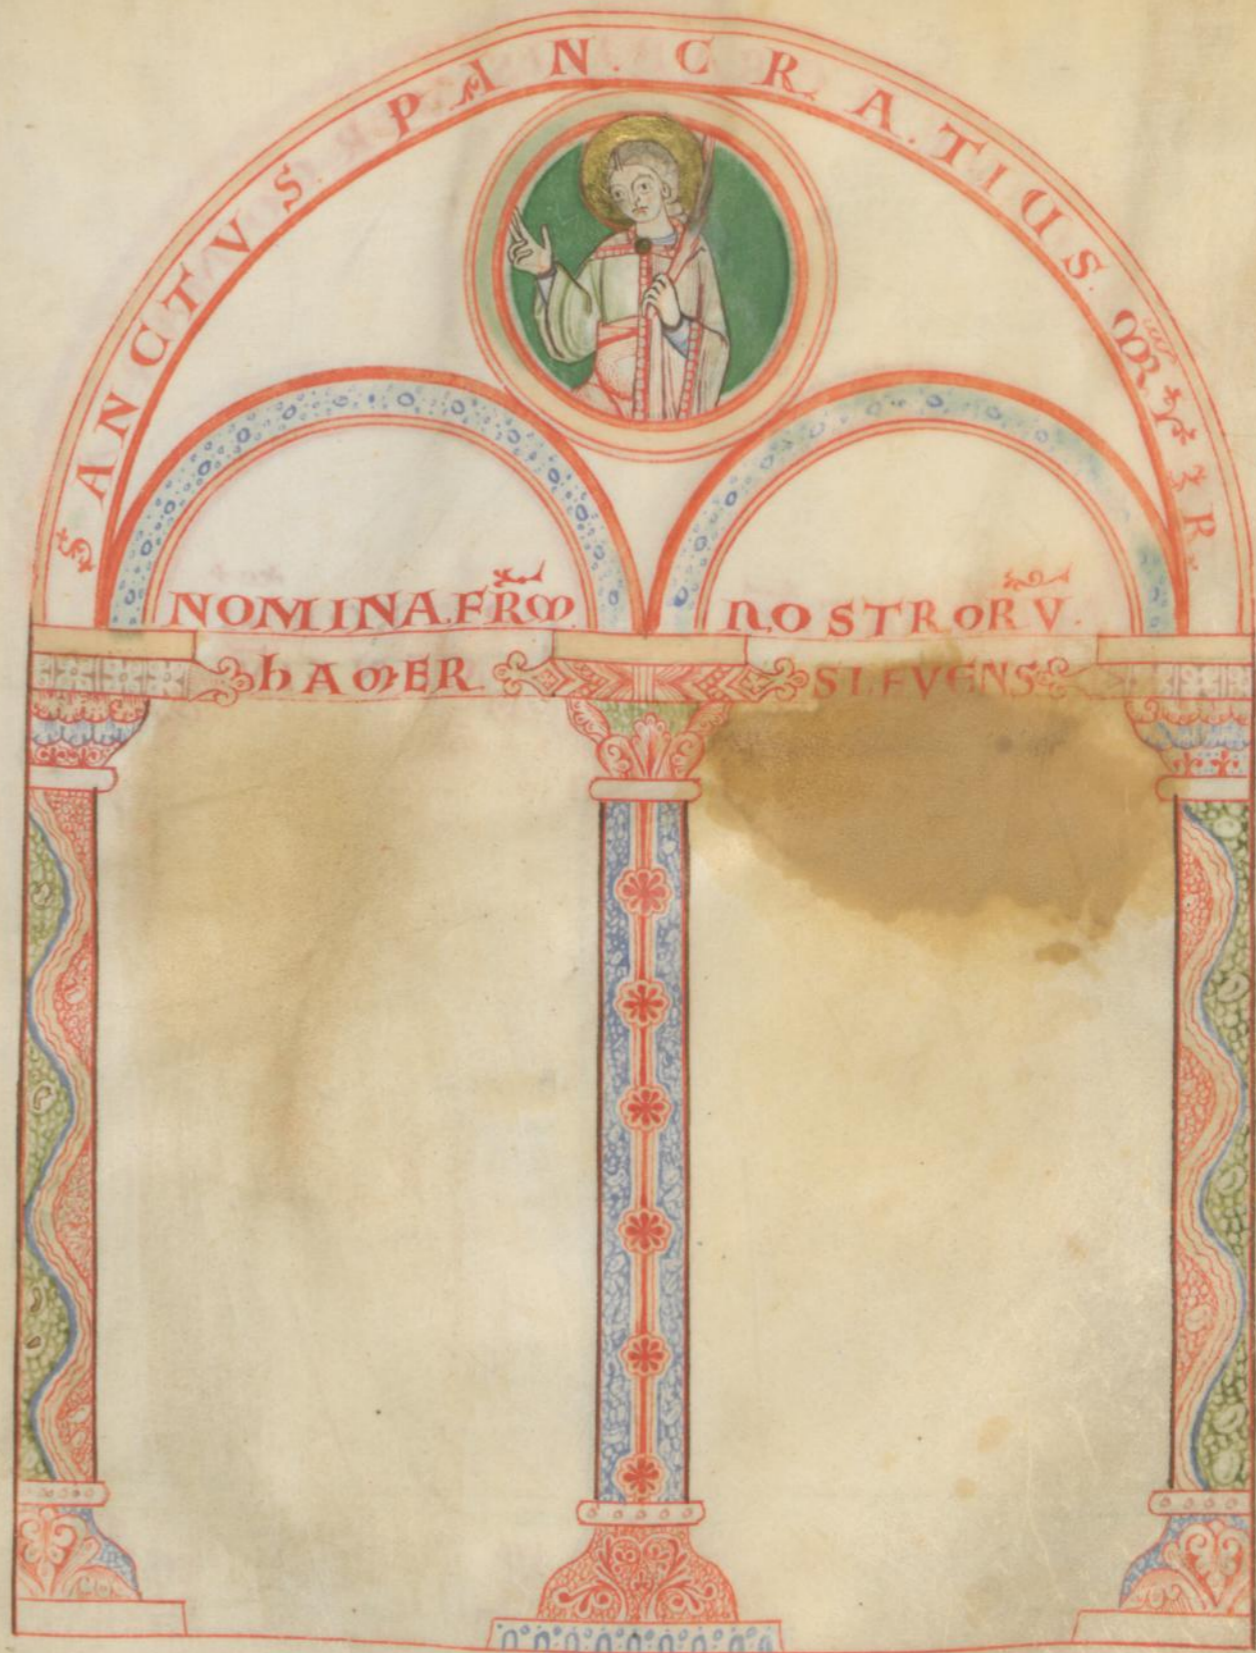 SANCTVS. PAN. CRA. TIUS. MR̃
NOMINA. FR̃M NOSTRORṼ.
hAMER SLEVENS